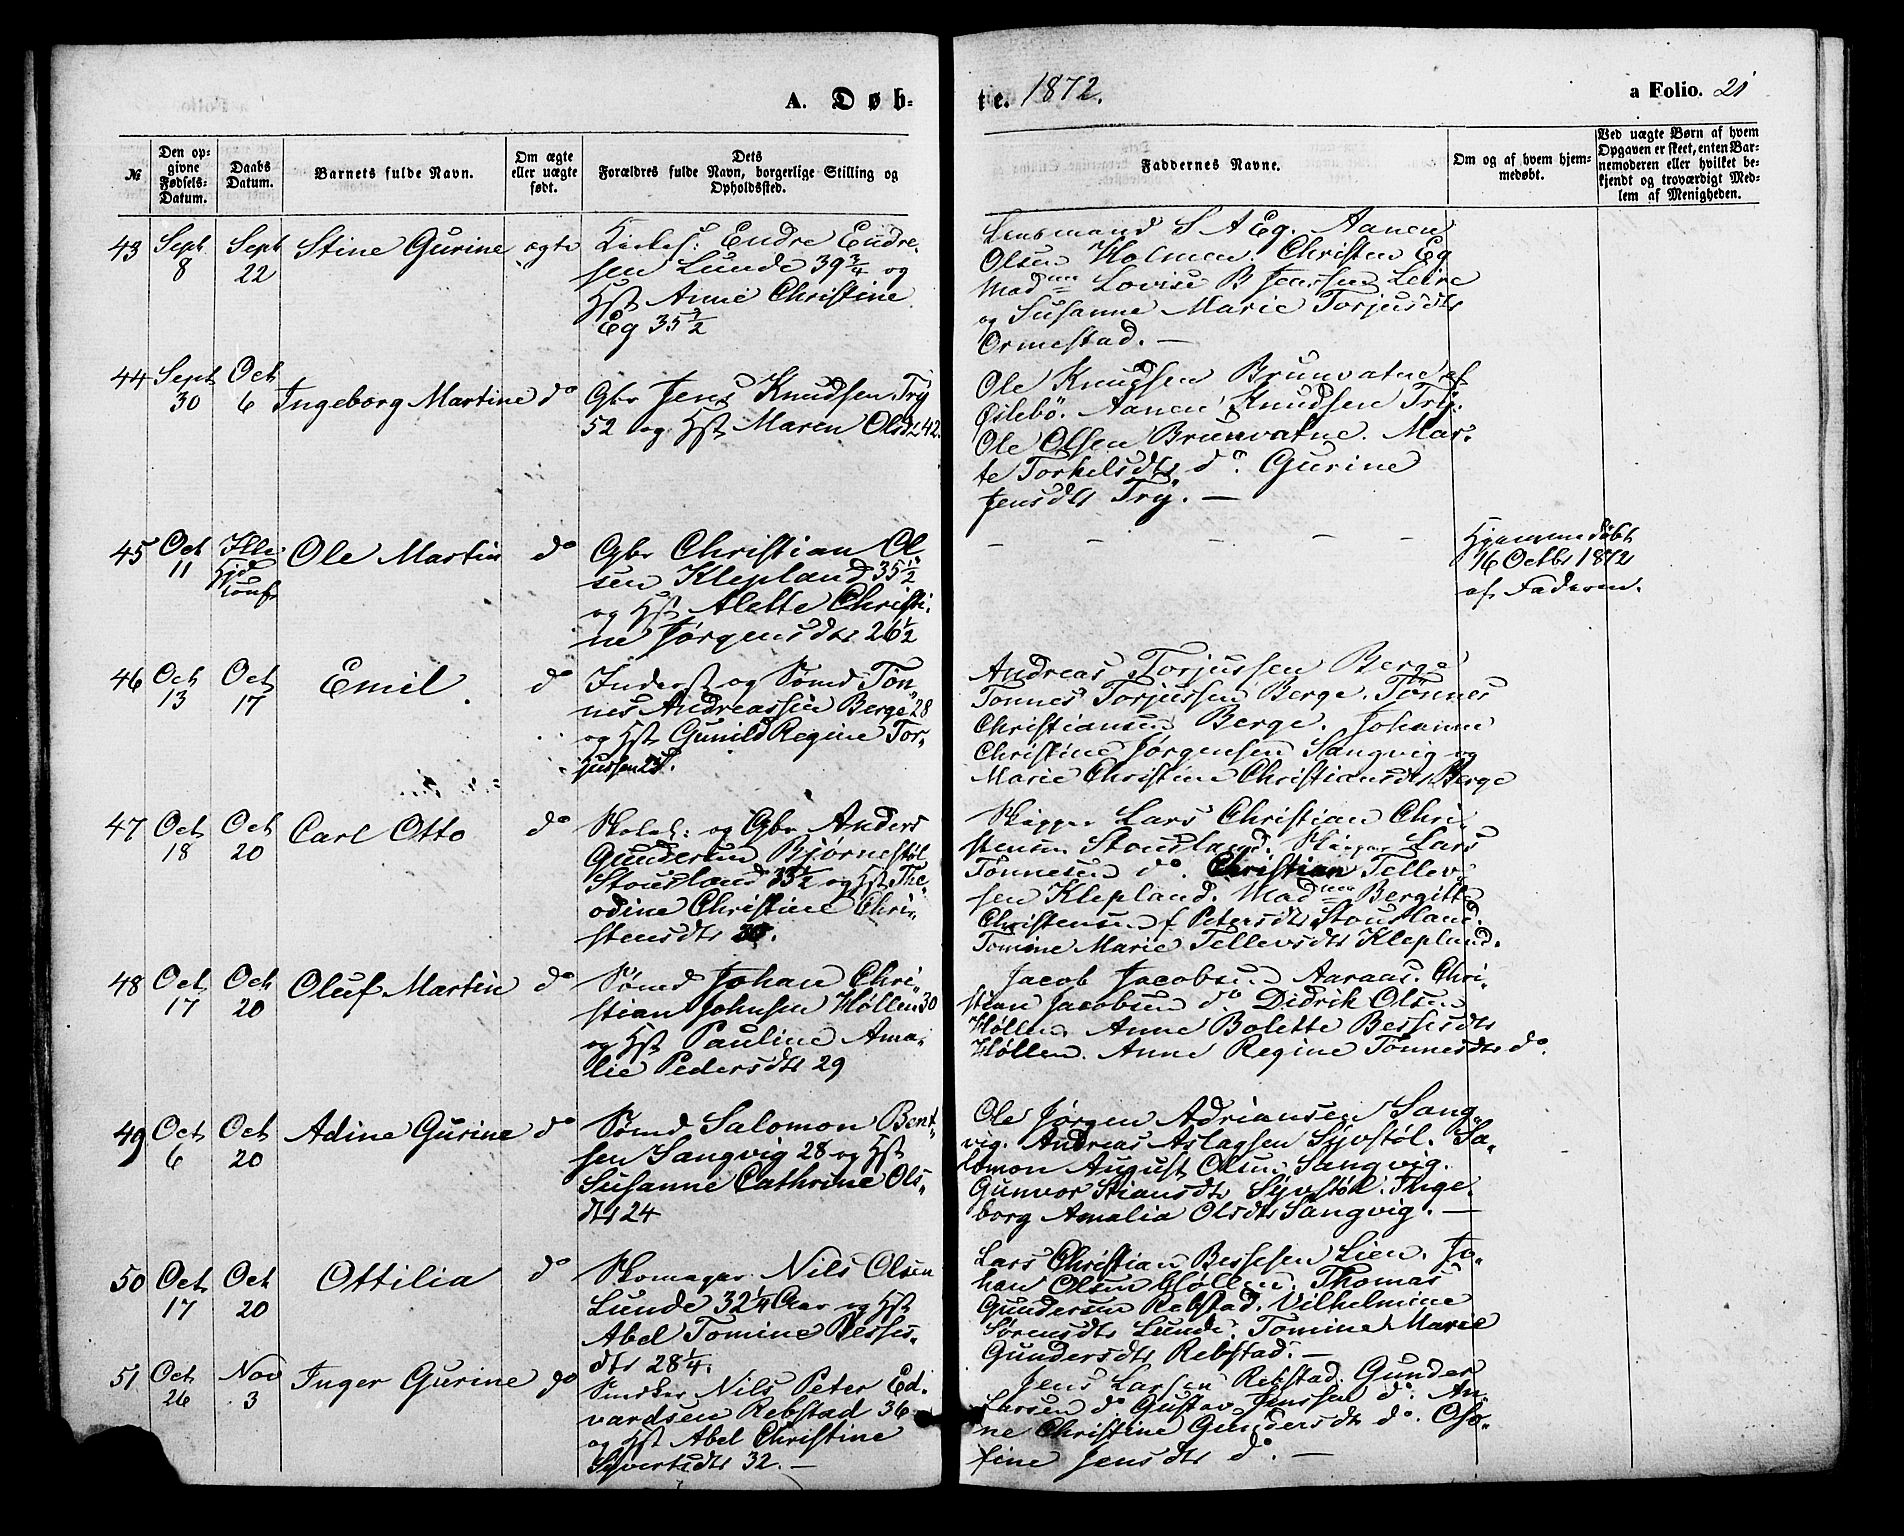 A. Døb-
te. 1872.
a Folio. 21
№
Den op-
givne
Fødsels-
Datum.
Daabs
Datum.
Barnets fulde Navn.
Om ægte
eller uægte
født.
Dets
Forældres fulde Navn, borgerlige Stilling og
Opholdssted.
Faddernes Navne.
Om og af hvem hjem-
medøbt.
Ved uægte Børn af hvem
Opgaven er skeet, enten Bar-
nemoderen eller hvilket be-
kjendt og troværdigt Med-
lem af Menigheden.
43 Sept 8 Sept 22 Stine Gurine ægte
Kirkes: Endre Endre-
sen Lunde 39 3/4 og
Hst Anne Christine
Eg 35 1/2
Lensmand S A Eg. Aanen
Olsen Holmen. Christen Eg
Mad Lovise B Jenssen Leire
og Susanne Marie Torjusdtr
Ormestad. —
44 Sept 30 Oct 6 Ingeborg Martine do
Gbr Jens Knudsen Try
52 og Hst Maren Olsdtr 42.
Ole Knudsen Brunvatne af
Øslebö. Aanen Knudsen Try.
Ole Olsen Brunvatne. Mar-
te Torkelsdtr do. Gurine
Jensdtr Try. —
45 Oct 11 Ille Hjd Conf Ole Martin do
Gbr Christian Ol-
sen Klepland 35 1/2
og Hst Alette Christi-
ne Jørgensdtr 26 1/2
– – – – –
Hjemmedøbt
16 Octbr 1872
af Faderen.
46 Oct 13 Oct 17 Emil. do
Inderst og Sømd Tøn-
nes Andreassen Berge 28
og Hst Gunild Regine Tor-
jussen
Andreas Torjussen Berge
Tønnes Torjussen Berge. Tønnes
Christiansen Berge. Johanne
Christine Jørgensen Sangvig og
Marie Christine Christiansdtr Berge
47 Oct 18 Oct 20 Carl Otto do
Skolel: og Gbr Anders
Gundersen Bjørnestøl
Stousland 35 1/2 og Hst The-
odine Christine Chri-
stensdtr 30.
Skipper Lars Christian Chri-
stensen Stousland. Skipper Lars
Tønnesen do. Christian Tellev-
sen Klepland. Mad Bergitte
Christensen f Petersdtr Stousland.
Tomine Marie Tellevsdtr Klepland.
48 Oct 17 Oct 20 Oluf Martin do
Sømd Johan Chri-
stian Johnsen Høllen 30
og Hst Pauline Ama-
lie Pedersdtr 29
Jacob Jacobsen Aaraas. Chri-
stian Jacobsen do Didrik Olsen
Høllen. Anne Bolette Bessesdtr
Høllen. Anne Regine Tønnesdtr do.
49 Oct 6 Oct 20 Adine Gurine do
Sømd Salomon Bent-
sen Sangvig 28 og Hst
Susanne Cathrine Ols-
dtr 24
Ole Jørgen Adriansen Sang-
vig. Andreas Aslagsen Syvstøl. Sa-
lomon August Olsen Sangvig.
Gunvor Stiansdtr Syvstøl. Inge-
borg Amalia Olsdtr Sangvig. —
50 Oct 17 Oct 20 Ottilia do
Skomager Nils Olsen
Lunde 32 1/4 Aar og Hst
Abel Tomine Besses-
dtr 28 1/4.
Lars Christian Bessesen Lien. Jo-
han Olsen Høllen. Thomas
Gundersen Rebstad. Vilhelmine
Sørensdtr Lunde. Tomine Marie
Gundersdtr Rebstad. —
51 Oct 26 Nov 3 Inger Gurine do
Snedker Nils Peter Ed-
vardsen Rebstad 36
og Hst Abel Christine
Syvertsdtr 32. —
Jens Larsen Rebstad. Gunder
Larsen do Gustav Jenssen do. An-
ne Christine Gundersdtr do. Ose-
fine Jensdtr do. —